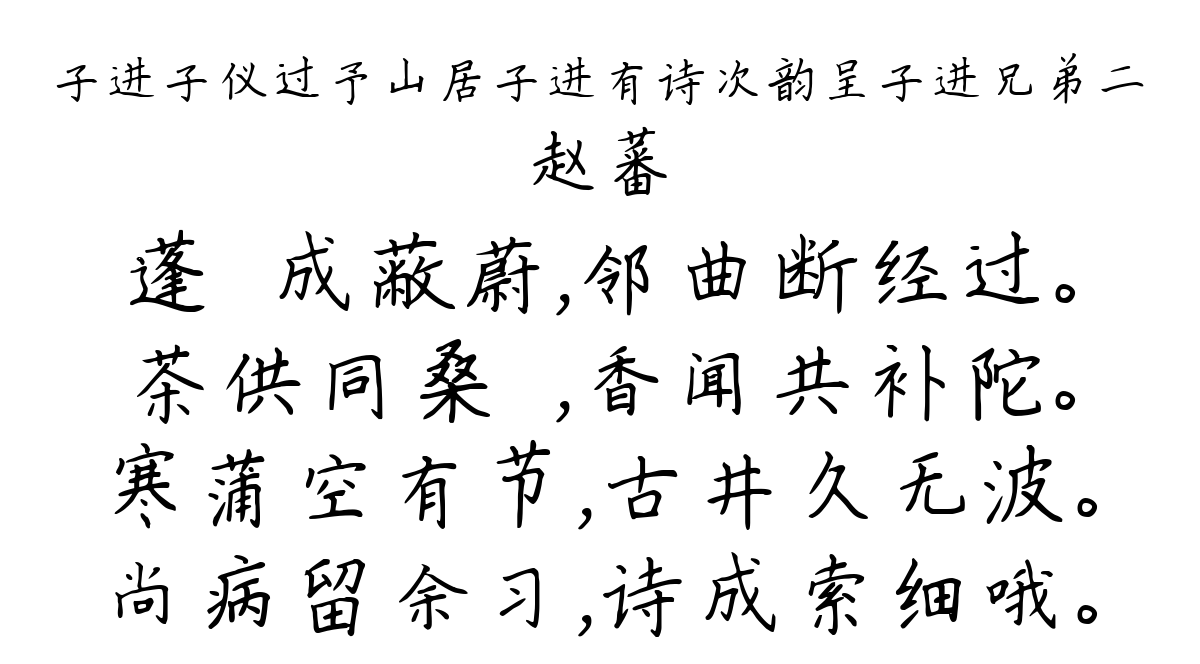 子进子仪过予山居子进有诗次韵呈子进兄弟二
赵蕃
蓬 成蔽蔚,邻曲断经过。
茶供同桑 ,香闻共补陀。
寒蒲空有节,古井久无波。
尚病留余习,诗成索细哦。